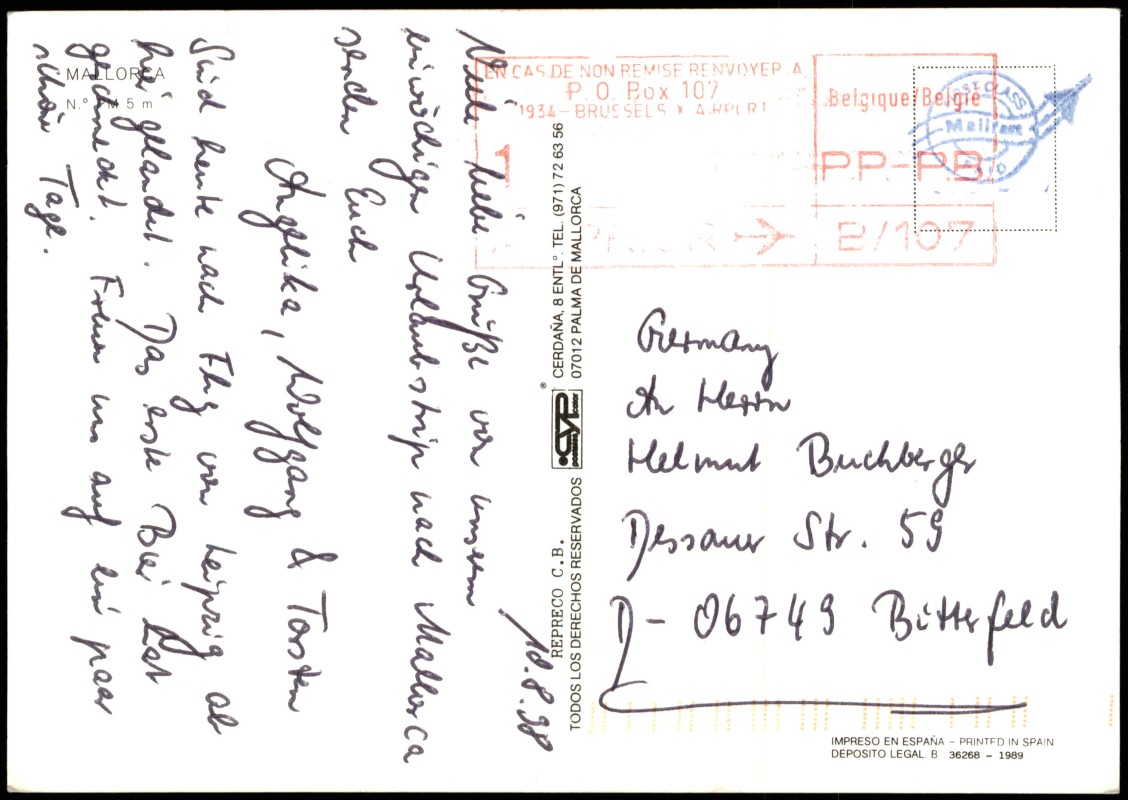 MALLORCA
N.º PM 5 m
18.8.98
Viele liebe Grüße von unserem
einwöchigen Urlaubstrip nach Mallorca
senden Euch
Angelika, Wolfgang & Torsten
Sind heute nach Flug von Leipzig ab
hier gelandet. Das erste Bier hat
geschmeckt. Freuen uns auf ein paar
schöne Tage.
TODOS LOS DERECHOS RESERVADOS
REPRECO C.B.
CERDAÑA, 8 ENTLº. TEL. (971) 72 63 56
07012 PALMA DE MALLORCA
EN CAS DE NON REMISE RENVOYER A
P.O. Box 107
1934 - BRUSSELS X AIRPORT
1
Belgique/België
PP-PB
B/107
Germany
An Herrn
Helmut Buchberger
Dessauer Str. 59
D - 06749 Bitterfeld
IMPRESO EN ESPAÑA - PRINTED IN SPAIN
DEPOSITO LEGAL. B 36268 - 1989